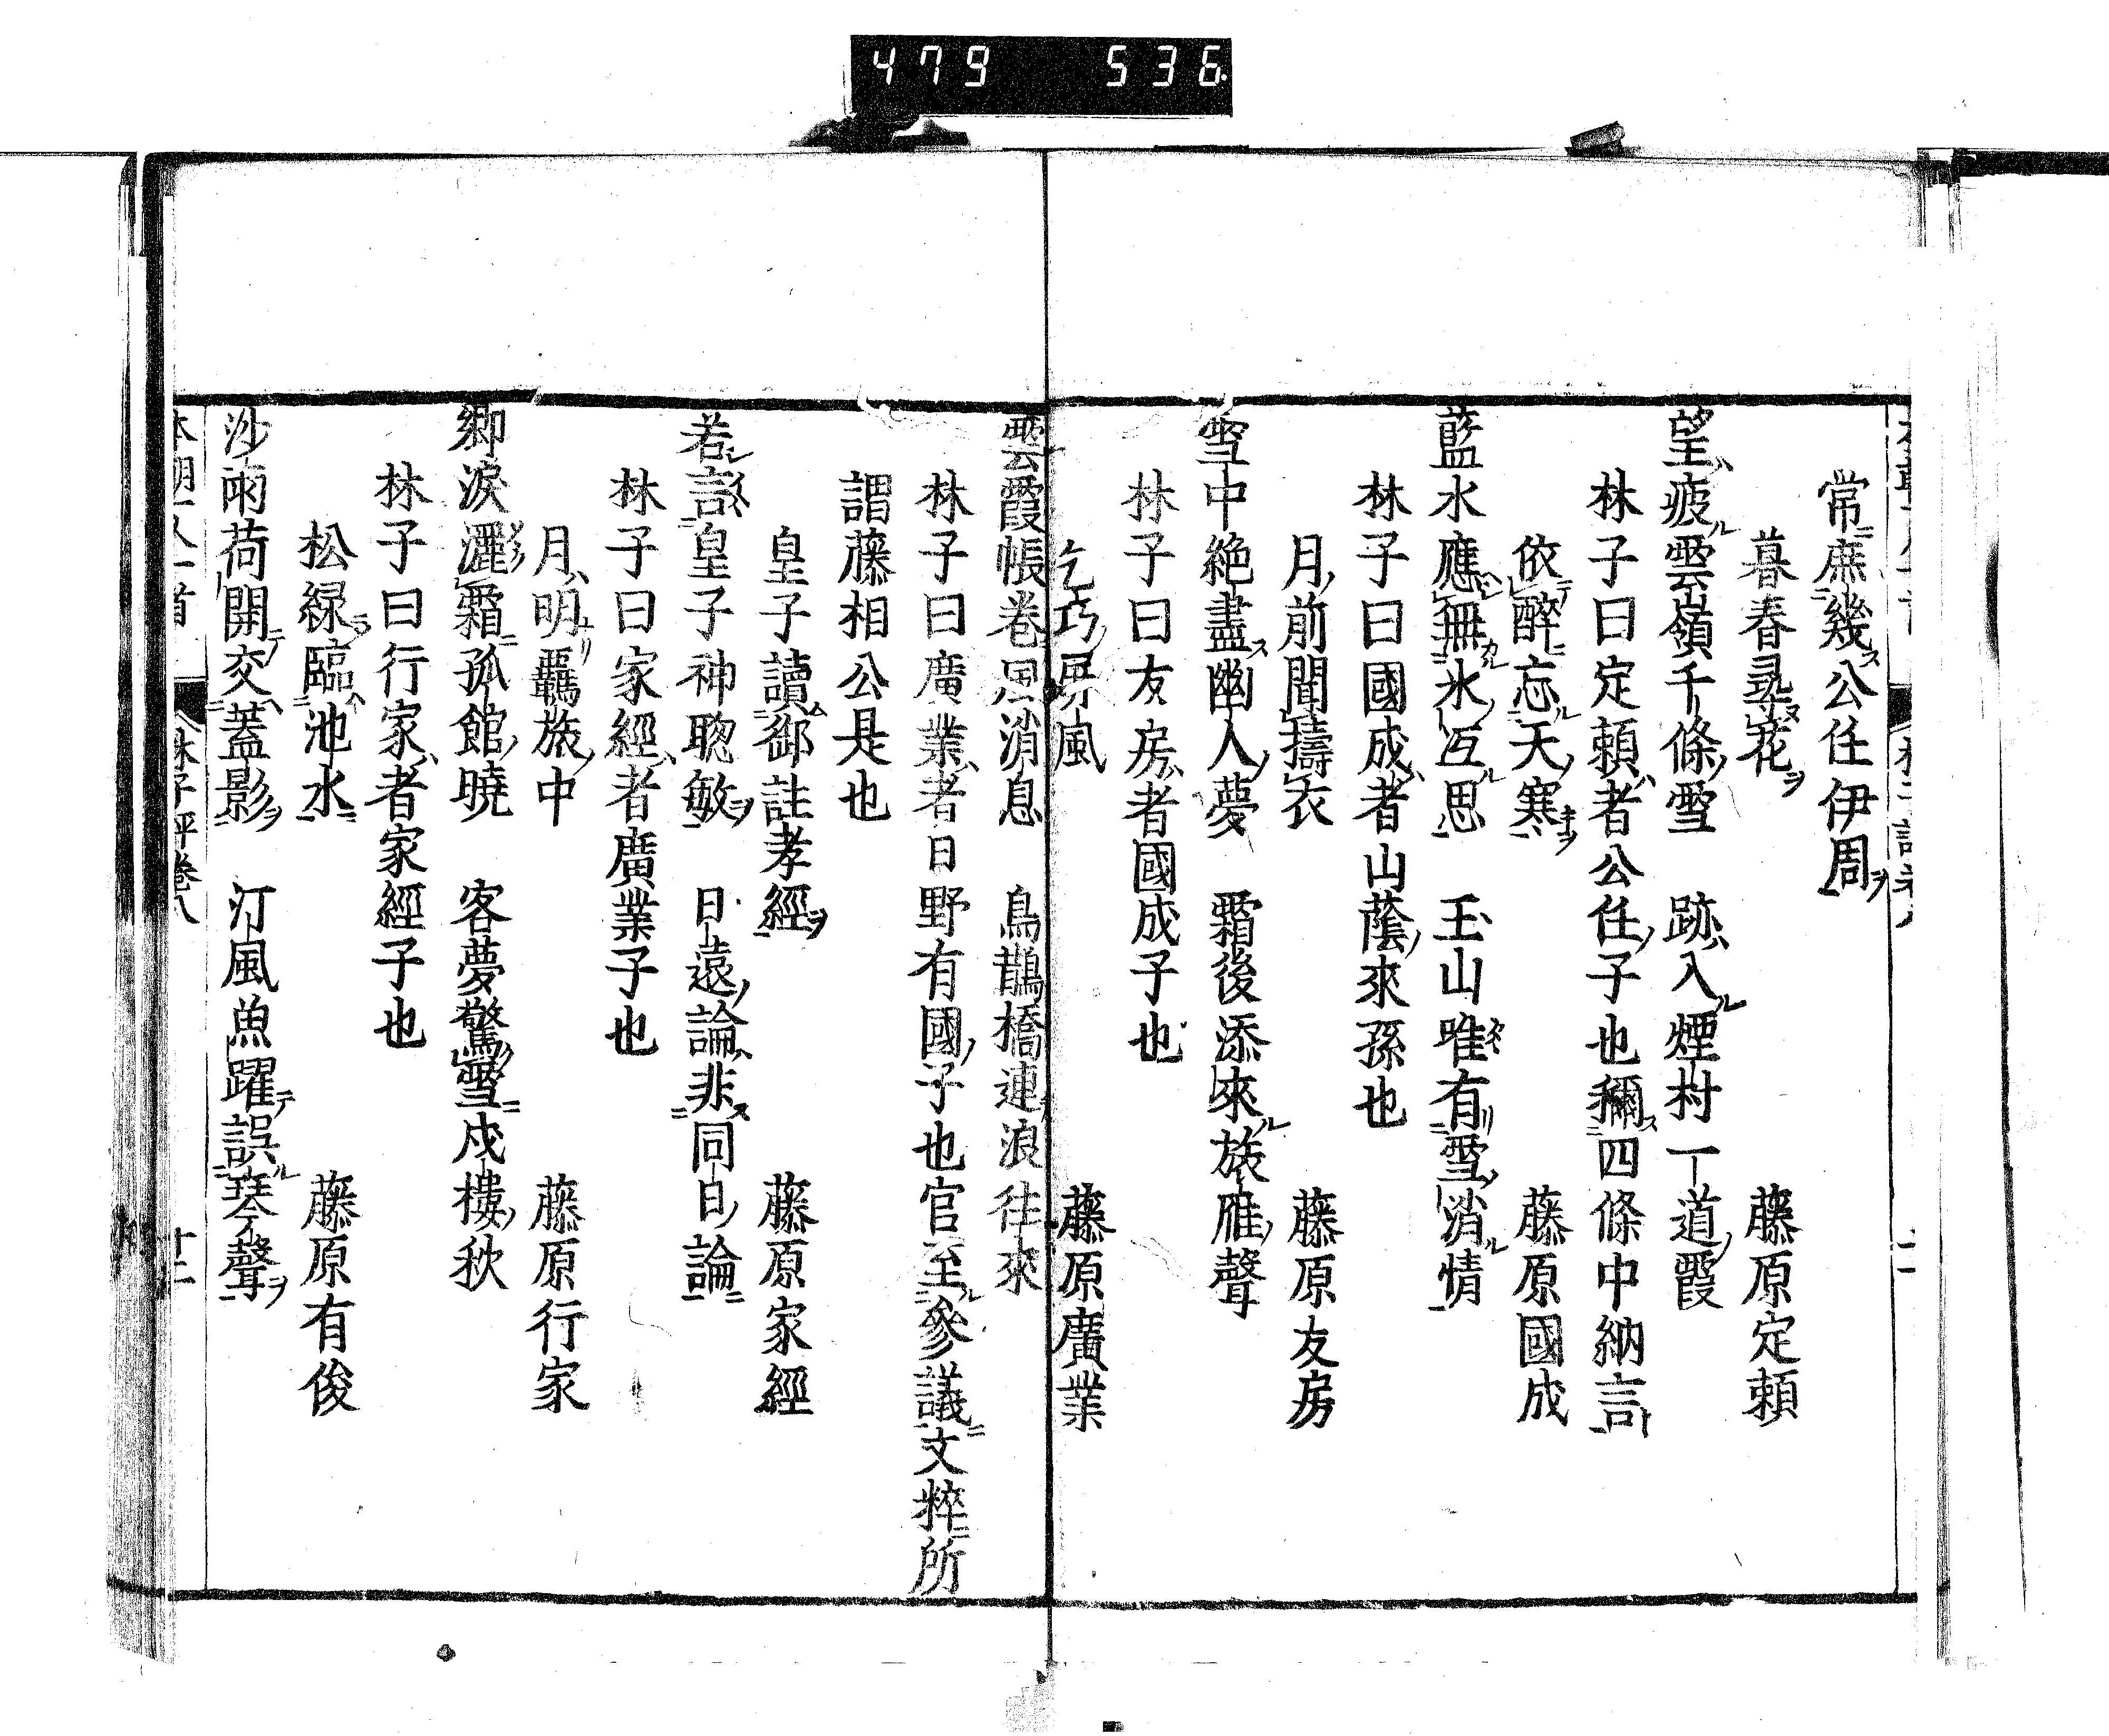 479 536
常庶幾公任伊周
暮春尋花 藤原定頼
望疲雲嶺千條雪 跡入煙村一道霞
林子曰定頼者公任子也稱四條中納言
依醉忘天寒 藤原國成
藍水應無氷冱思 玉山唯有雪消情
林子曰國成者山蔭來孫也
月前聞擣衣 藤原友房
雪中絶盡幽人夢 霜後添來旅雁聲
林子曰友房者國成子也
乞巧屏風 藤原廣業
雲霞帳卷風消息 烏鵲橋連浪往來
林子曰廣業者日野有國子也官至參議文粹所
謂藤相公是也
皇子讀御註孝經 藤原家經
若言皇子神聰敏 日遠論非同日論
林子曰家經者廣業子也
月明羈旅中 藤原行家
鄉淚灑霜孤館曉 客夢驚雪戍樓秋
林子曰行家者家經子也
松緑臨池水 藤原有俊
沙雨荷開交蓋影 汀風魚躍誤琴聲
本朝一人一首 林子評卷八 十二